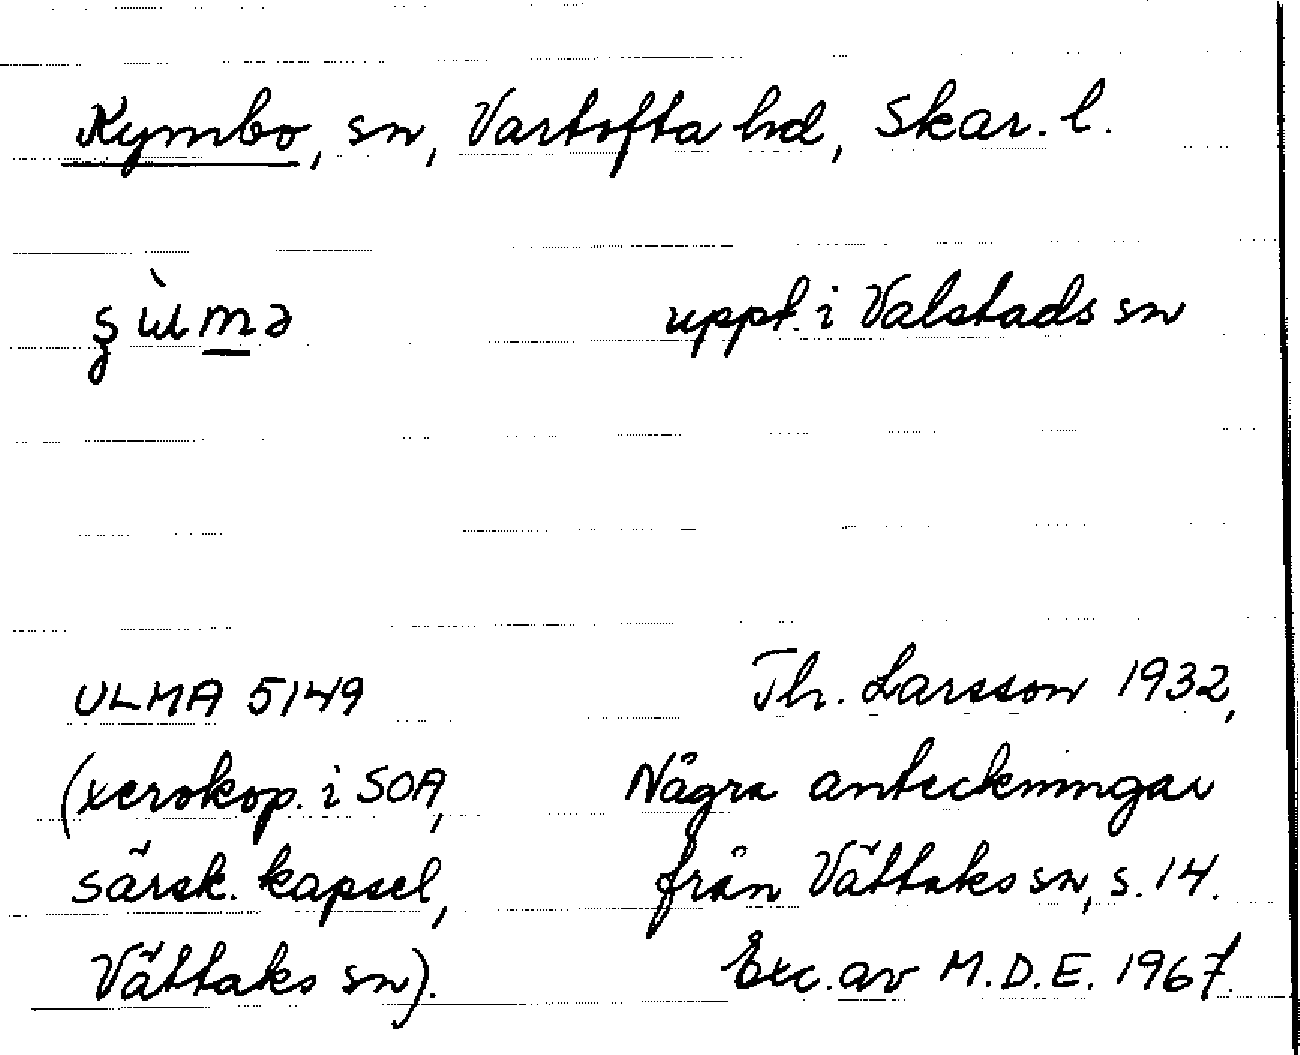 Kymbo, sn, Vartofta hd, Skar. l.
uppt. i Valstads sn
ULMA 5149 Th. Larsson 1932,
(xerokop. i SOA, Några anteckningar
särsk. kapsel, från Vättaks sn, s. 14.
Vättaks sn). Exc. av M.D.E. 1967.